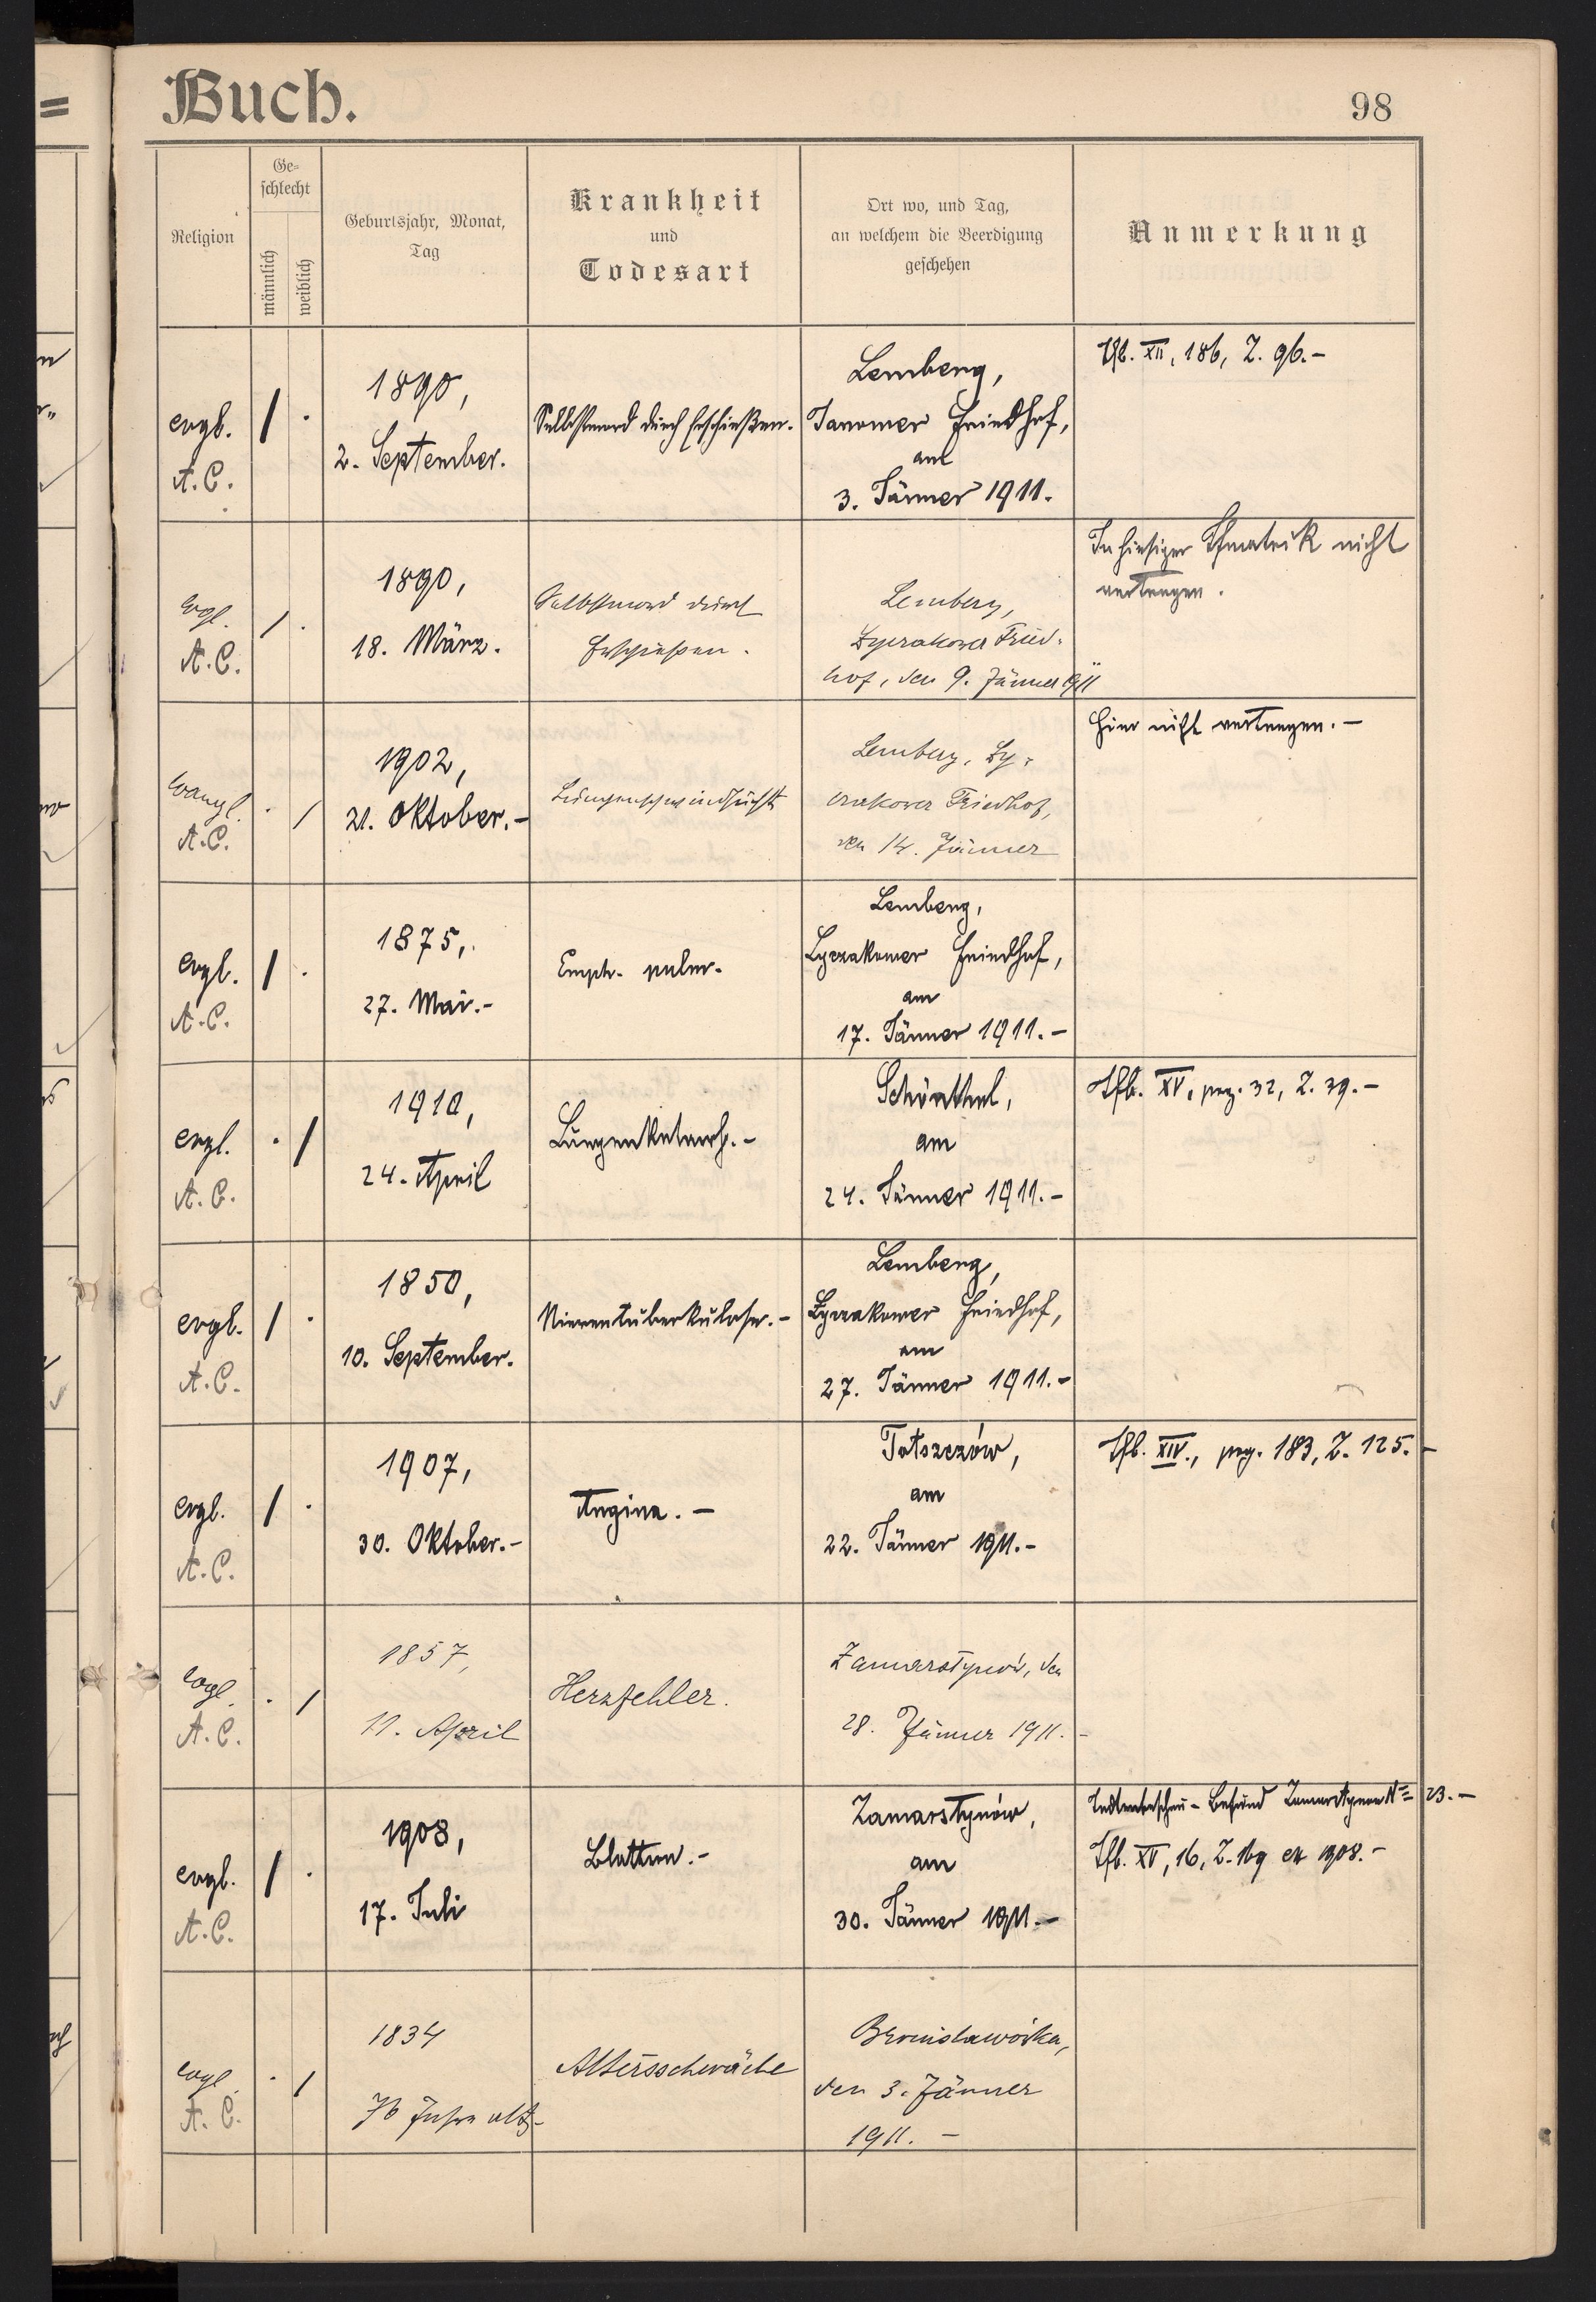 Buch.
98
Religion
Ge=
schlecht
männlich
weiblich
Geburtsjahr, Monat,
Tag
Krankheit
und
Todesart
Ort wo, und Tag,
an welchem die Beerdigung
geschehen
Anmerkung
evgl.
A. C.
1890,
2. September.
Selbstmord durch Erschießen.
Lemberg,
Janower Friedhof,
am
3. Jänner 1911.
Tfb. XII, 186, Z. 96.-
evgl.
A. C.
1890,
18. März.
Selbstmord durch
Erschießen.
Lemberg,
Lyczakower Fried-
hof, den 9. Jänner 1911
In hiesiger nicht
vertragen.
evangl.
A. C.
1902,
21. Oktober.-
Lungenschwindsucht
Lemberg, Ly-
czakower Friedhof,
den 14. Jänner
Hier nicht vertragen.-
evgl.
A. C.
1875,
27. Mai.-
Emph. pulm.
Lemberg,
Lyczakower Friedhof,
am
17. Jänner 1911.-
evgl.
A. C.
1910,
24. April
Lungenkatarrh.-
Schönthal,
am
24. Jänner 1911.-
Tfb. XV, pag. 32, Z. 39.-
evgl.
A. C.
1850,
10. September.
Nierentuberkulose.-
Lemberg,
Lyczakower Friedhof,
am
27. Jänner 1911.-
evgl.
A. C.
1907,
30. Oktober.-
Angina.-
Tatszezów,
am
22. Jänner 1911.-
Tfb. XIV., pag. 183, Z. 125.-
evgl.
A. C.
1857,
11. April
Herzfehler.
Zamarstynów, den
28. Jänner 1911.-
evgl.
A. C.
1908,
17. Juli
Blattern.-
Zamarstynów,
am
30. Jänner 1911.-
Todtenbeschau-Befund Zamarstynow N= 23.-
Tfb. XV, 16, Z. 169 ex 1908.-
evgl.
A. C.
1834
76 Jahre alt.-
Altersschwäche
Bronislawówka,
den 3. Jänner
1911.-